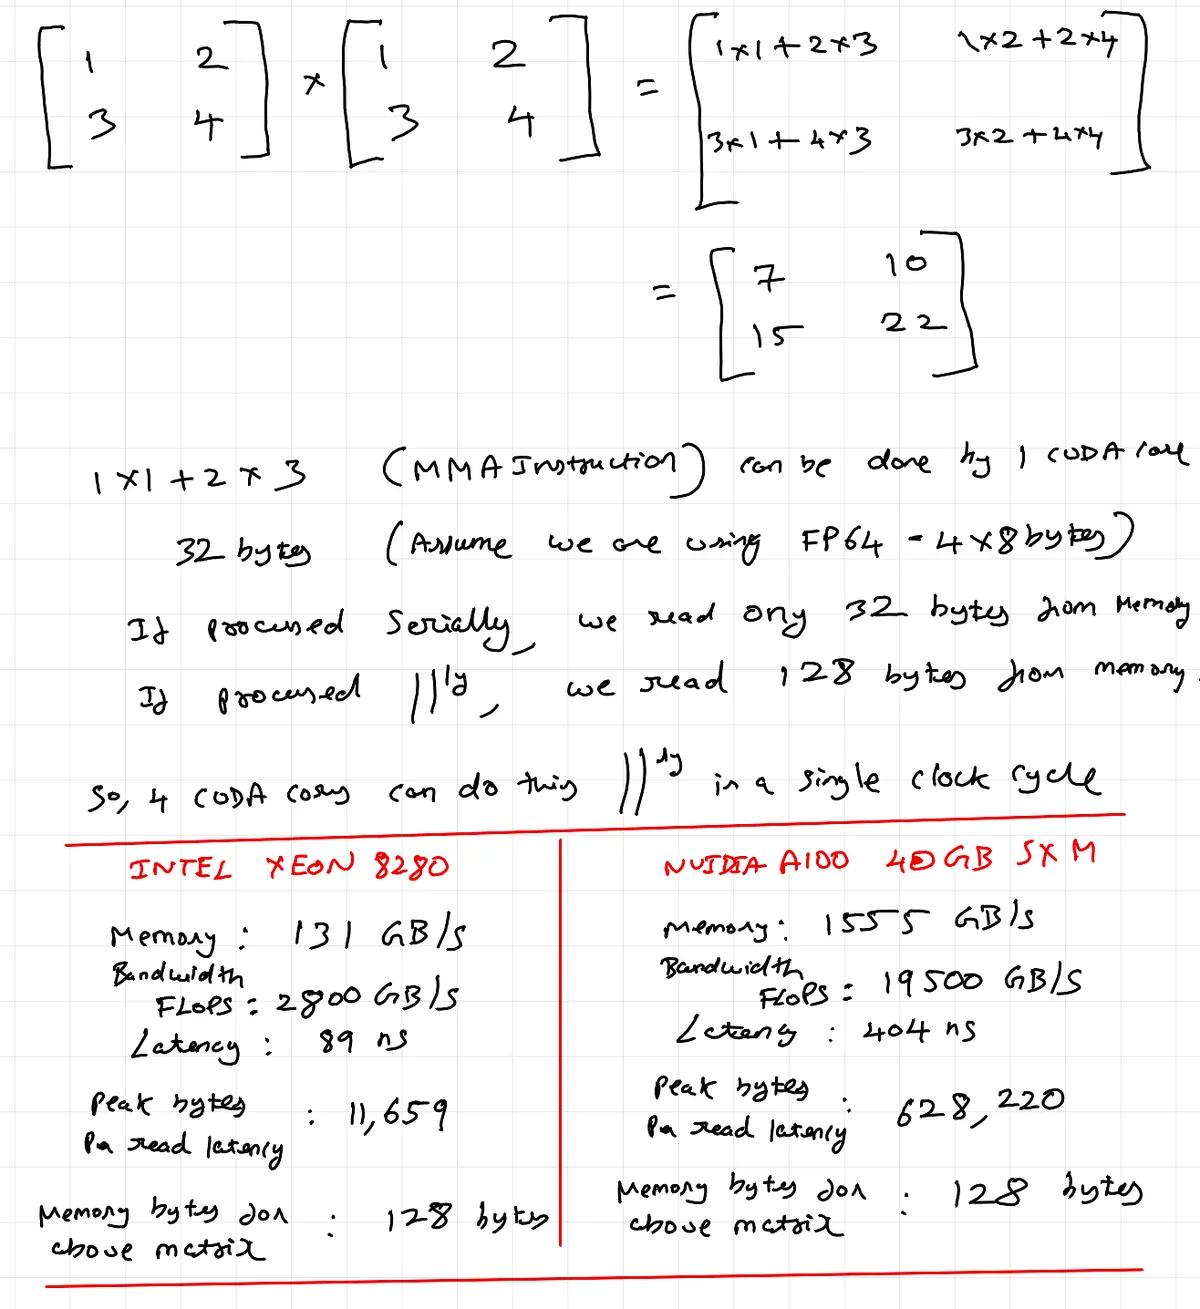 [1 2] × [1 2] = [1×1+2×3 1×2+2×4]
[3 4] [3 4] [3×1+4×3 3×2+4×4]
= [7 10]
[15 22]
1×1+2×3 (MMA Instruction) can be done by 1 CUDA core
32 bytes (Assume we are using FP64 - 4×8 bytes)
If processed serially, we read only 32 bytes from Memory
If processed ||ly, we read 128 bytes from memory.
So, 4 CUDA cores can do this ||ly in a single clock cycle
INTEL XEON 8280
Memory Bandwidth : 131 GB/s
FLOPS : 2800 GB/s
Latency : 89 ns
Peak bytes
Per read latency : 11,659
Memory bytes for
above matrix : 128 bytes
NVIDIA A100 40GB SXM
Memory Bandwidth : 1555 GB/s
FLOPS : 19500 GB/s
Latency : 404 ns
Peak bytes
Per read latency : 628,220
Memory bytes for
above matrix : 128 bytes